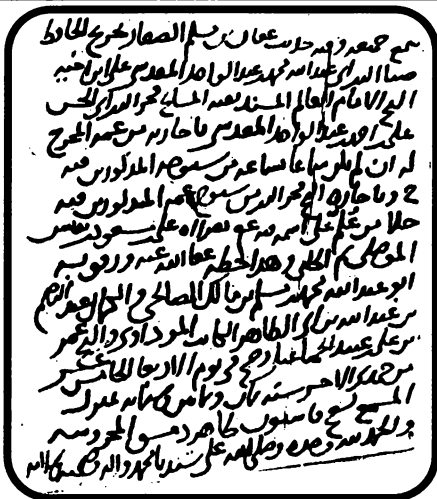 سمع جميعه وفيه حديث عفان بن مسلم الصفار تخريج الحافظ
ضيا الدين ابي عبد الله محمد بن عبد الواحد المقدسي على ابن اخيه
الشيخ الامام العالم المسند بقية المسايخ فخر الدين ابي الحسن
علي بن احمد بن عبد الواحد المقدسي باجازته من عمه المخرج
له ان لم يكن سماعا بسماعه من شيوخه المذكورين فيه
ح وباجازة الشيخ فخر الدين من شيوخ عمه المذكورين فيه
خلا من علم على اسمه بقراة علي بن مسعود بن نفيس
الموصلي ثم الحلبي وهذا خطه عفا الله عنه ورفق به
ابو عبد الله محمد بن مسلم بن مالك الصالحي و عبد الرحيم
بن عبد الله بن الطاهر
بن علي بن عبيد وصح في يوم الاربعا الخامس عشر
من جمدى الاخر سنة ثمان وثمانين وستمايه بمنزل
المسمع بسفح قاسيون ظاهر دمشق المحروسه
والحمد لله وحده وصلى الله على سيدنا محمد واله وصحبه